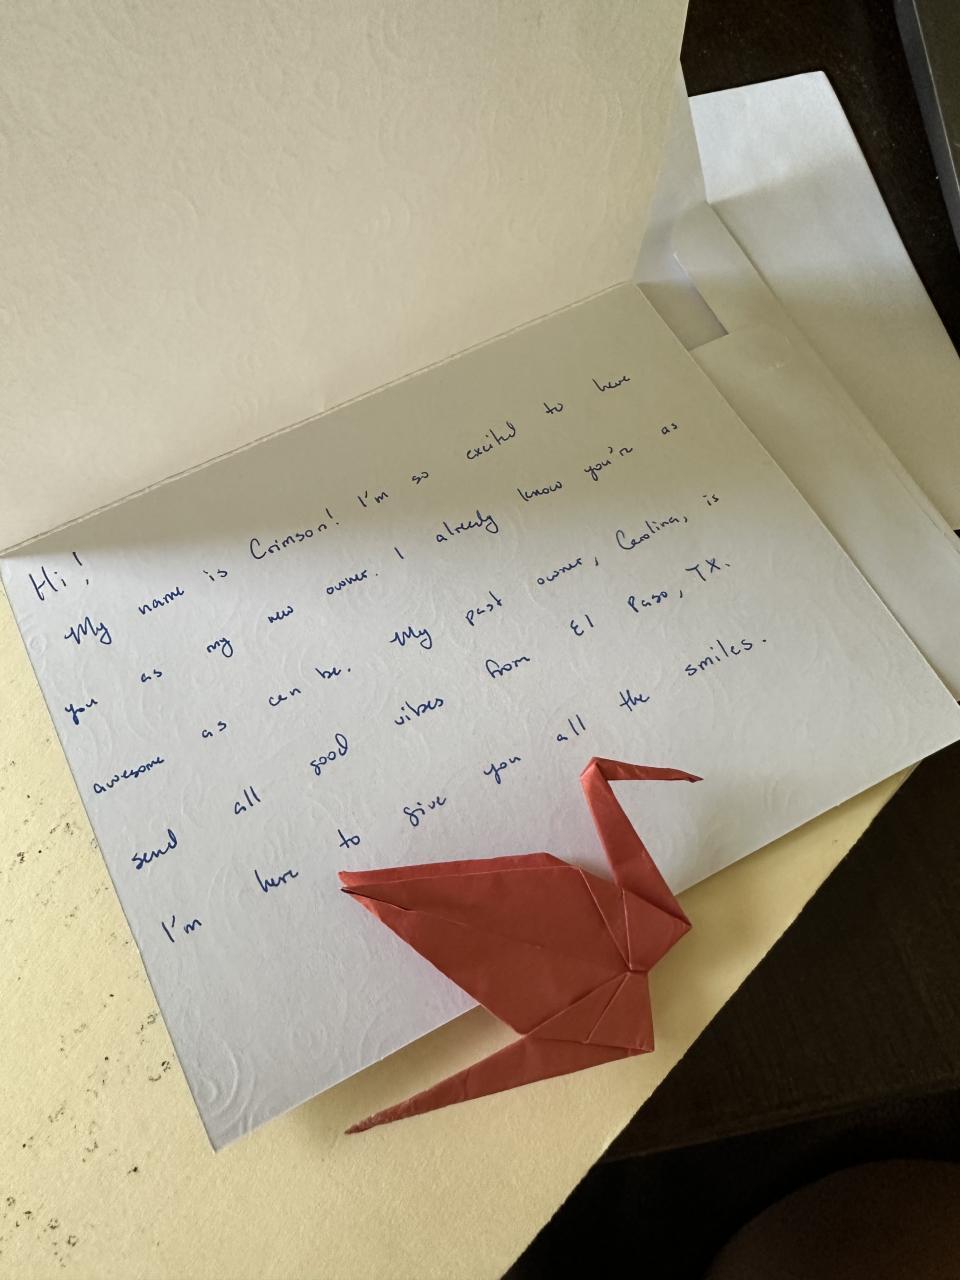 Hi!
My name is Crimson! I'm so excited to have
you as my new owner. I already know you're as
awesome as can be. My past owner, Carolina, is
send all good vibes from El Paso, TX.
I'm here to give you all the smiles.